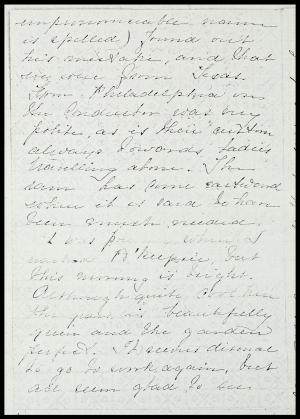 unpronounceable name
is spelled) found out
his mistake, and that
we were from Texas.
From Philadelphia on
the conductor was very
polite, as is their custom
always towards ladies
travelling alone. The
rain has come east and
where it is said to have
been much needed.
I was pouring when I
reached P'keepsie, but
this morning is bright.
Although quite cool here
the place is beautifully
green and the garden
perfect. It seems dismal
to go to work again, but
all seem glad to see